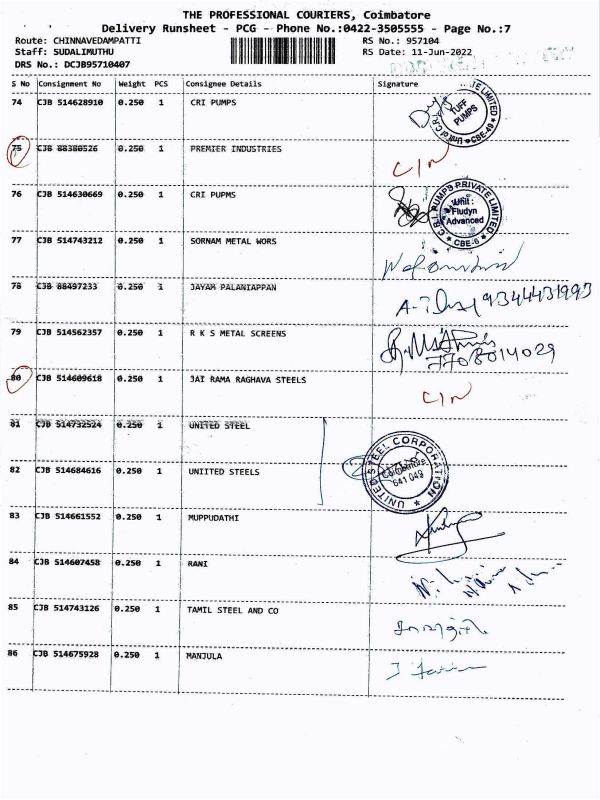 THE PROFESSIONAL COURIERS, Coimbatore
Delivery Runsheet - PCG - Phone No.:0422-3505555 - Page No.:7
Route: CHINNAVEDAMPATTI RS No.: 957104
Staff: SUDALIMUTHU RS Date: 11-Jun-2022
DRS No.: DCJB95710407
S No Consignment No Weight PCS Consignee Details Signature
74 CJB 514628910 0.250 1 CRI PUMPS
TUFF PUMPS CBE-49
75 CJB 88380526 0.250 1 PREMIER INDUSTRIES C/N
76 CJB 514630669 0.250 1 CRI PUPMS
C.R.I. PUMPS PRIVATE LIMITED Unit: Fludyn Advanced CBE-6
77 CJB 514743212 0.250 1 SORNAM METAL WORS
78 CJB 88497233 0.250 1 JAYAM PALANIAPPAN 9344431993
79 CJB 514562357 0.250 1 R K S METAL SCREENS 7708014029
80 CJB 514609618 0.250 1 JAI RAMA RAGHAVA STEELS C/N
81 CJB 514732524 0.250 1 UNITED STEEL
82 CJB 514684616 0.250 1 UNIITED STEELS
UNITED STEEL CORPORATION 641 049
83 CJB 514661552 0.250 1 MUPPUDATHI
84 CJB 514607458 0.250 1 RANI
85 CJB 514743126 0.250 1 TAMIL STEEL AND CO
86 CJB 514675928 0.250 1 MANJULA